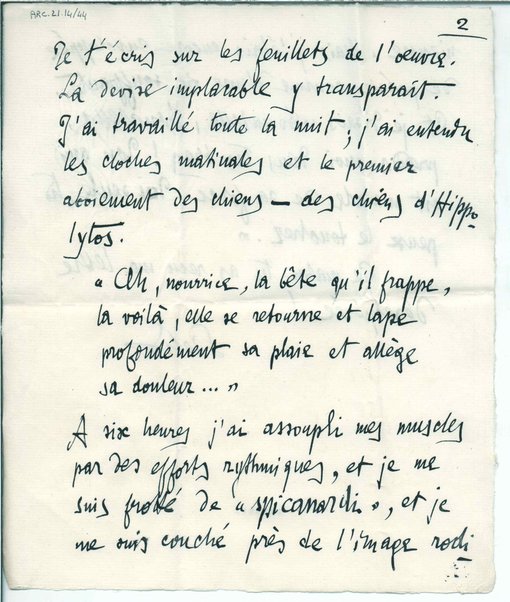 ARC.21.14/44
2
Je t'écris sur les feuillets de l'œuvre.
La devise implacable y transparaît.
J'ai travaillé toute la nuit ; j'ai entendu
les cloches matinales et le premier
aboiement des chiens — des chiens d'Hippo-
lytos.
« Ah, nourrice, la bête qu'il frappe,
la voilà, elle se retourne et lape
profondément sa plaie et allège
sa douleur... »
A six heures j'ai assoupli mes muscles
par des efforts rythmiques, et je me
suis frotté de « spicanardi », et je
me suis couché près de l'image rodi